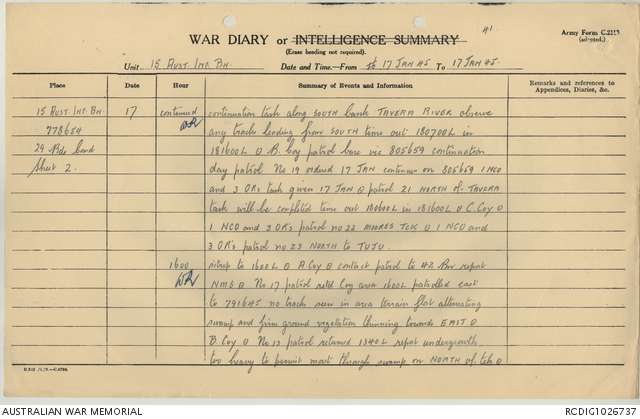 41
Army Form C.2118
(adapted.)
WAR DIARY or INTELLIGENCE SUMMARY
(Erase heading not required).
Unit 15 AUST. INF. BN. Date and Time—From 17 JAN 45 To 17 JAN 45.
Place Date Hour Summary of Events and Information Remarks and references to Appendices, Diaries, &c.
15 AUST. INF. BN. 17 continued continuation task along SOUTH bank TAVERA RIVER observe
778654 any tracks leading from SOUTH time out 180700L in
29 Bde Comd 181600L @ B. Coy patrol base vic 805659 continuation
Sheet 2. day patrol No 19 ordered 17 JAN continues on 805659 1 NCO
and 3 ORs task given 17 JAN @ patrol 21 NORTH of TAVERA
task will be completed time out 180800L in 181600L @ C. Coy @
1 NCO and 3 ORs patrol no 22 MOORES TCK @ 1 NCO and
3 ORs patrol no 23 NORTH to TUJU.
1600 sitrep to 1600L @ A. Coy @ contact patrol to 42 Bn report
NMS @ No 17 patrol retd Coy area 1600L patrolled east
to 791645 no tracks seen in area terrain flat alternating
swamp and firm ground vegetation thinning towards EAST @
B. Coy @ No 13 patrol returned 1340L report undergrowth
too heavy to permit movt through swamp on NORTH of tck @
AUSTRALIAN WAR MEMORIAL RCDIG1026737